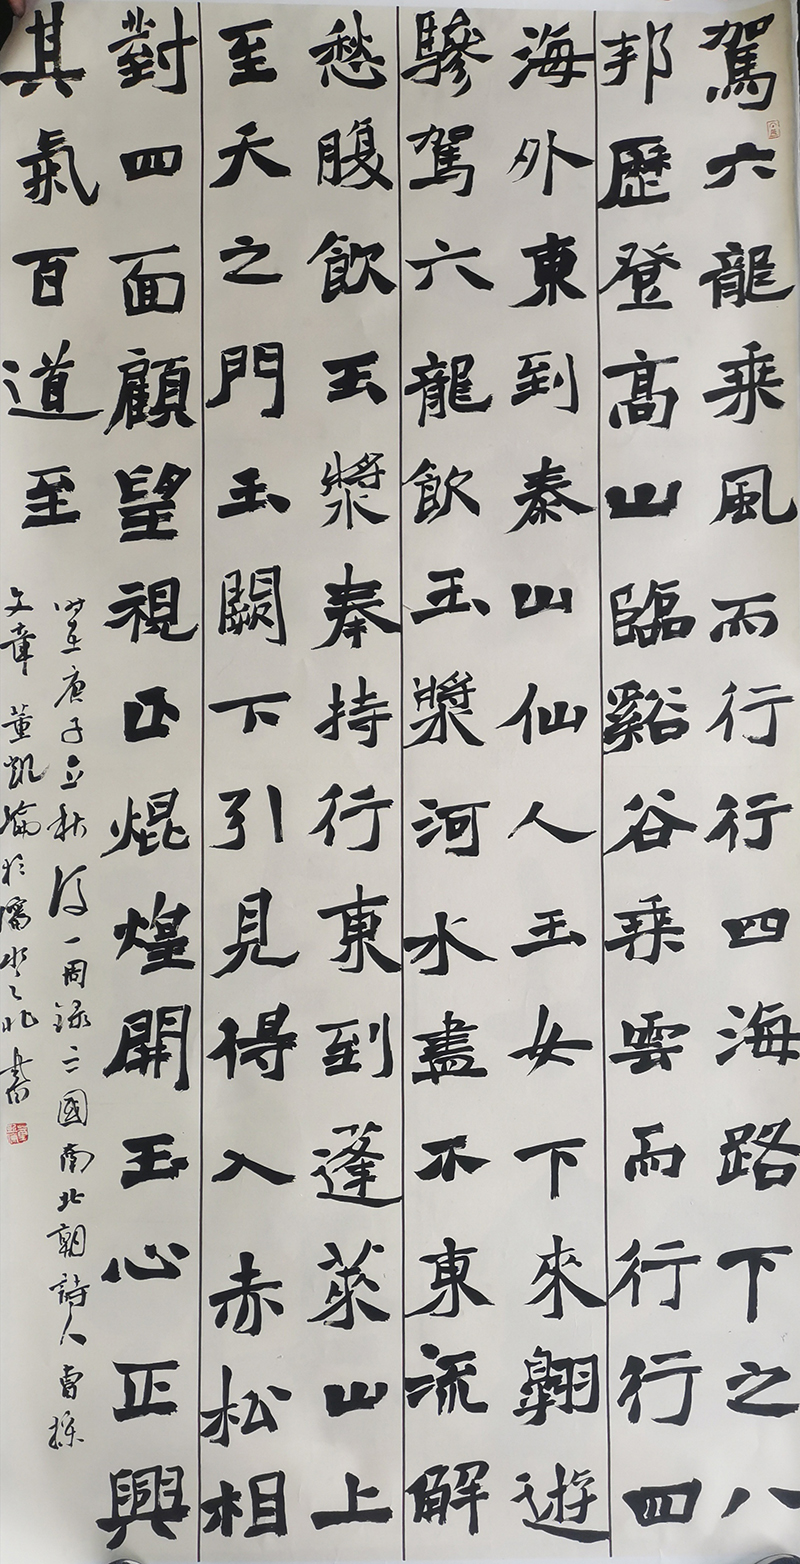 駕六龍乘風而行行四海路下之八
邦歷登高山臨谿谷乘雲而行行四
海外東到泰山仙人玉女下來翱遊
驂駕六龍飲玉漿河水盡不東流解
愁腹飲玉漿奉持行東到蓬萊山上
至天之門玉闕下引見得入赤松相
對四面顧望視正焜煌開玉心正興
其氣百道至
時在庚子立秋後一周錄三國南北朝詩人曹操
文章董凱於水之北書